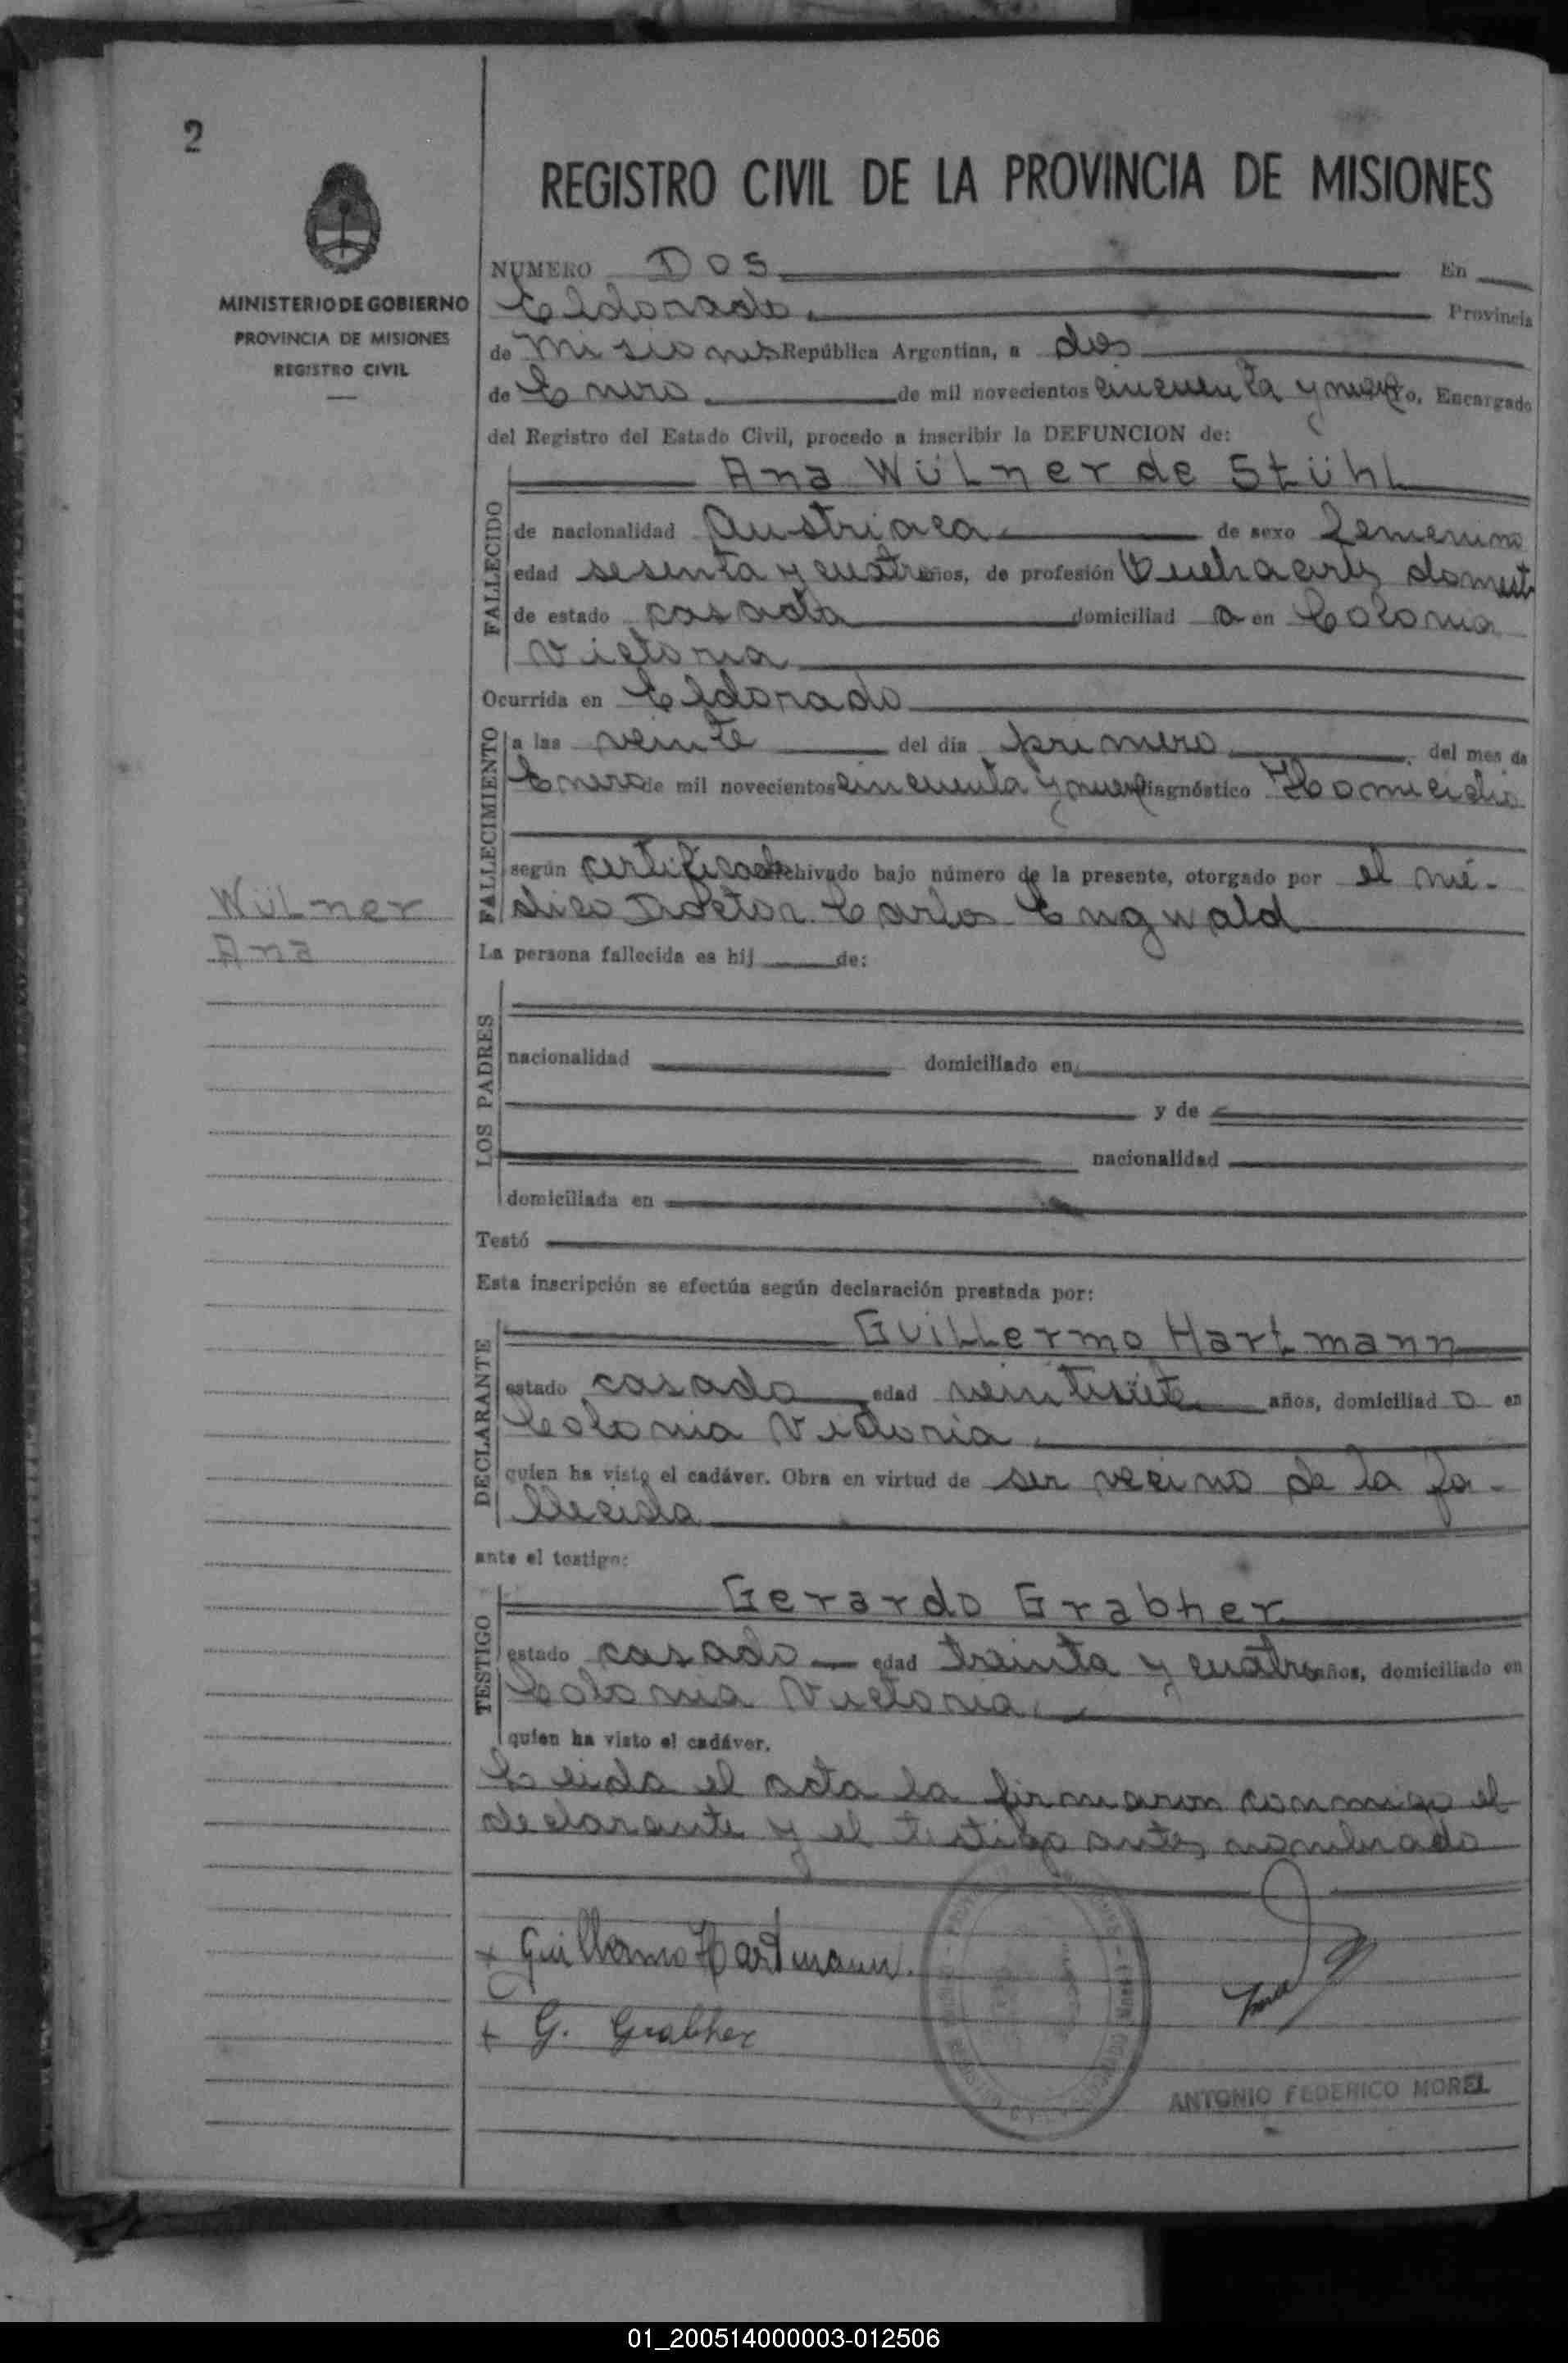 2
REGISTRO CIVIL DE LA PROVINCIA DE MISIONES
MINISTERIO DE GOBIERNO
PROVINCIA DE MISIONES
REGISTRO CIVIL
NUMERO DOS En
Eldorado. Provincia
de Misiones República Argentina, a dos
de Enero de mil novecientos cincuenta y nueve yo, Encargado
del Registro del Estado Civil, procedo a inscribir la DEFUNCION de:
Ana Wülner de Stühl
FALLECIDO
de nacionalidad Austriaca de sexo Femenino
edad sesenta y cuatro años, de profesión Quehaceres domest
de estado casada domiciliad a en Colonia
Victoria
Ocurrida en Eldorado
FALLECIMIENTO
a las veinte del día primero, del mes de
Enero de mil novecientos cincuenta y nueve diagnóstico Homicidio
según certificado archivado bajo número de la presente, otorgado por el mé-
dico Doctor Carlos Engwald
Wülner
Ana
La persona fallecida es hij de:
LOS PADRES
nacionalidad domiciliado en
y de
nacionalidad
domiciliada en
Testó
Esta inscripción se efectúa según declaración prestada por:
DECLARANTE
Guillermo Hartmann
estado casado edad veintisiete años, domiciliad o en
Colonia Victoria
quien ha visto el cadáver. Obra en virtud de ser vecino de la fa-
llecida
ante el testigo:
TESTIGO
Gerardo Grabher
estado casado edad treinta y cuatro años, domiciliado en
Colonia Victoria
quien ha visto el cadáver.
Leida el acta la firmaron conmigo el
declarante y el testigo antes nombrado
+ Guillermo Hartmann.
+ G. Grabher
ANTONIO FEDERICO MOREL
01_200514000003-012506